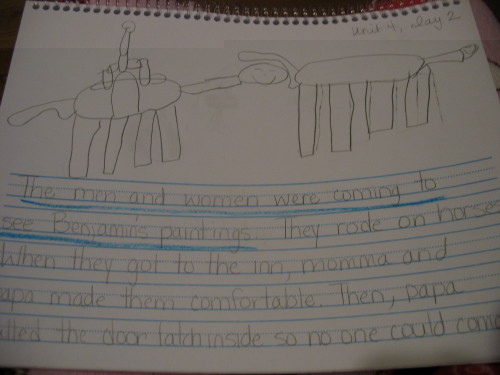 Unit 4, Day 2
The men and women were coming to
see Benjamin's paintings. They rode on horses
When they got to the inn, momma and
apa made them comfortable. Then, papa
lled the door latch inside so no one could come